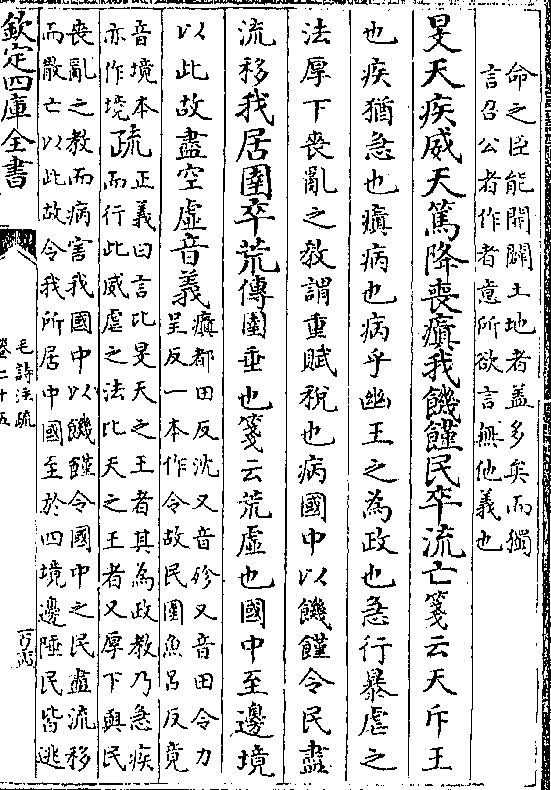 命之臣能開闢土地者蓋多矣而獨
言召公者作者意所欲言無他義也
旻天疾威天篤降喪瘨我饑饉民卒流亡箋云天斥王
也疾猶急也瘨病也病乎幽王之為政也急行暴虐之
法厚下喪亂之教謂重賦稅也病國中以饑饉令民盡
流移我居圉卒荒傳圉垂也箋云荒虛也國中至邊境
以此故盡空虛音義瘨都田反沈又音㐱又音田令力
呈反一本作令故民圉魚呂反竟
音境本
亦作境疏正義曰言比旻天之王者其為政教乃急疾
而行此威虐之法比天之王者又厚下與民
喪亂之教而病害我國中以饑饉令國中之民盡流移
而散亡以此故令我所居中國至於四境邊陲民皆逃
欽定四庫全書
毛詩注疏
卷二十五